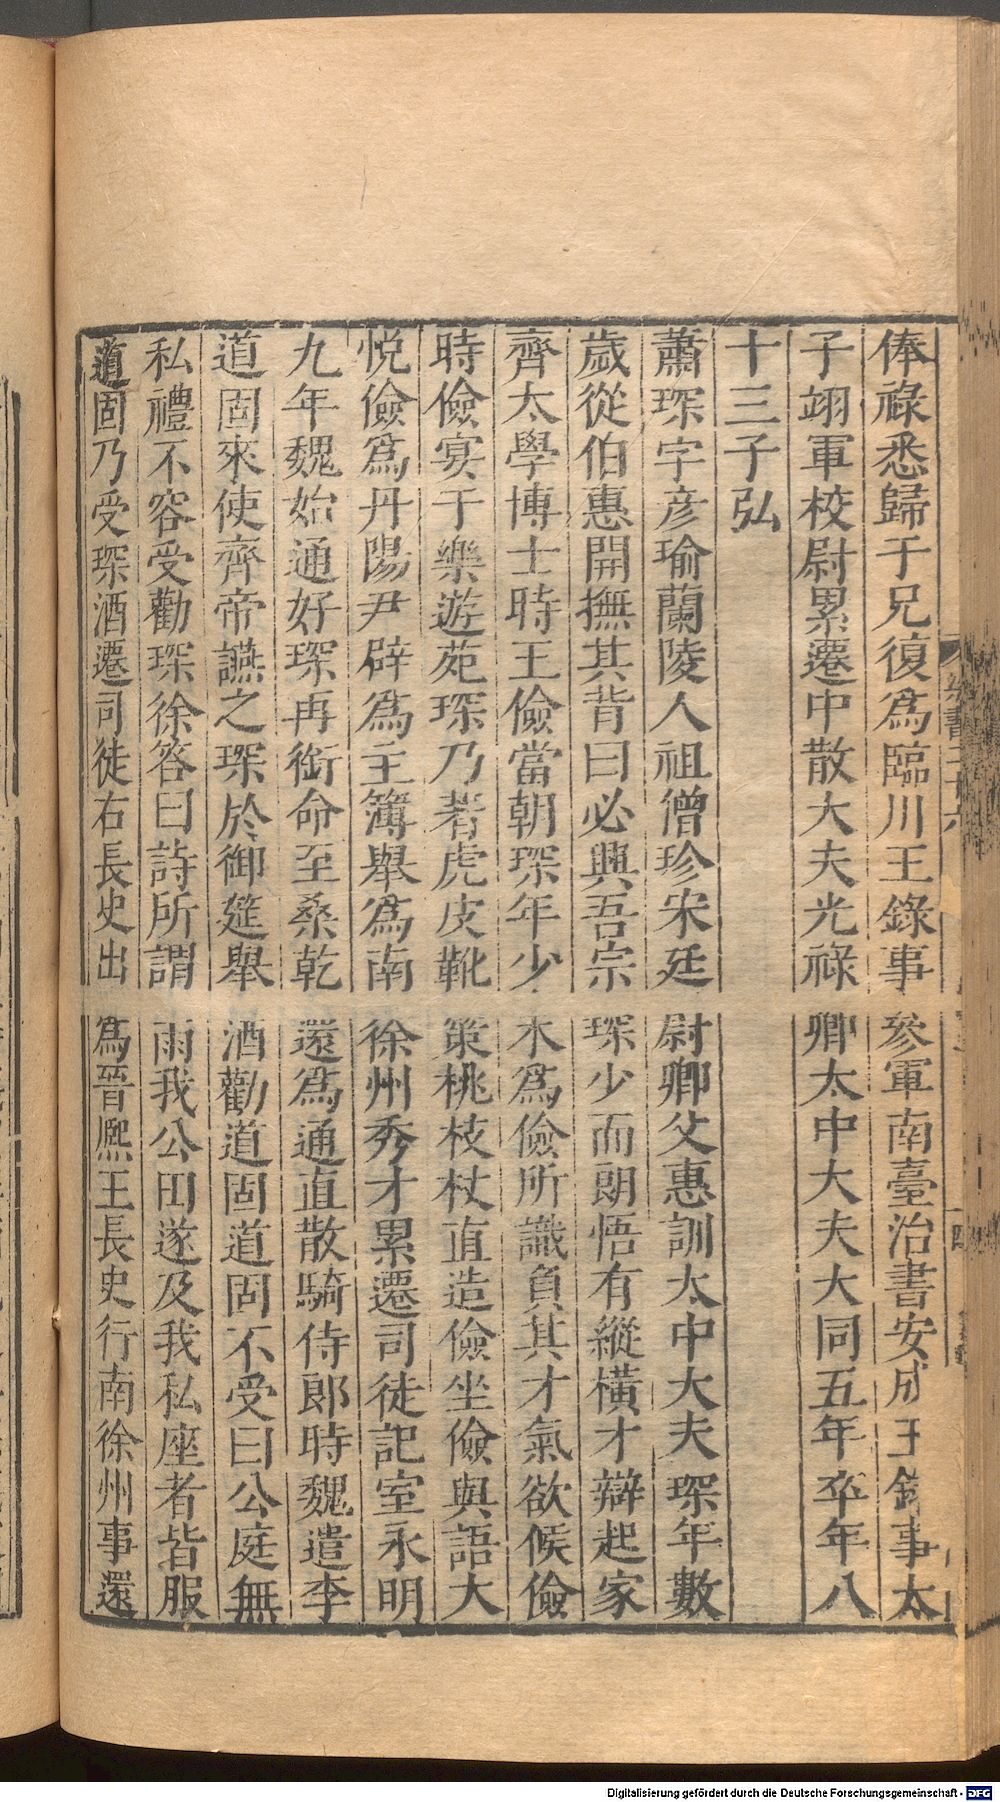 俸祿悉歸于兄復爲臨川王錄事參軍南臺治書安成王錄事太
子翊軍校尉累遷中散大夫光祿卿太中大夫大同五年卒年八
十三子弘
蕭琛字彦瑜蘭陵人祖僧珍宋廷尉卿父惠訓太中大夫琛年數
歲從伯惠開撫其背曰必興吾宗琛少而朗悟有縱橫才辯起家
齊太學博士時王儉當朝琛年少未爲儉所識負其才氣欲候儉
時儉宴于樂遊苑琛乃著虎皮靴策桃枝杖直造儉坐儉與語大
悦儉爲丹陽尹辟爲主簿舉爲南徐州秀才累遷司徒記室永明
九年魏始通好琛再銜命至桑乾還爲通直散騎侍郎時魏遣李
道固來使齊帝讌之琛於御筵舉酒勸道固道固不受曰公庭無
私禮不容受勸琛徐答曰詩所謂雨我公田遂及我私座者皆服
道固乃受琛酒遷司徒右長史出爲晉熈王長史行南徐州事還
Digitalisierung gefördert durch die Deutsche Forschungsgemeinschaft - DFG